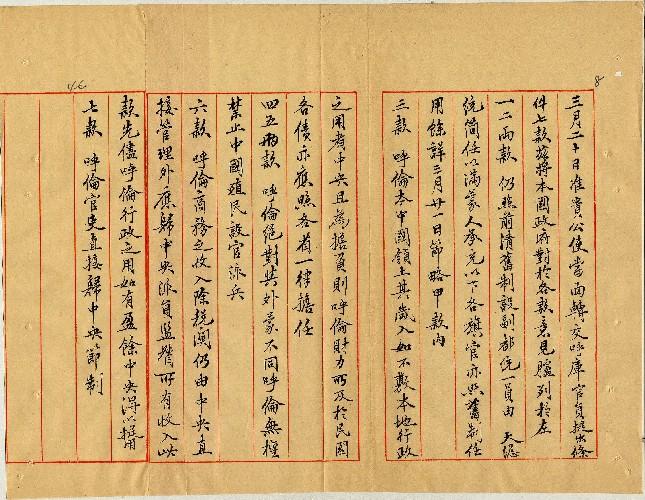 三月二十日准貴公使當面轉交呼庫官員提出條
件七款茲將本國政府對於各款意見臚列於左
一二兩款 仍照前清舊制設副都統一員由 大總
統簡任以滿蒙人承充以下各旗官亦照舊制任
用餘詳三月廿一日節略甲款內
三款 呼倫本中國領土其歲入如不敷本地行政
之用者中央且為擔負則呼倫財力所及於民國
各債亦應照各省一律擔任
四五兩款 呼倫絕對與外蒙不同呼倫無權
禁止中國殖民設官派兵
六款 呼倫商務之收入除稅關仍由中央直
接管理外應歸中央派員監督所有收入以
款先儘呼倫行政之用如有盈餘中央得以提用
七款 呼倫官吏直接歸中央節制
46
8